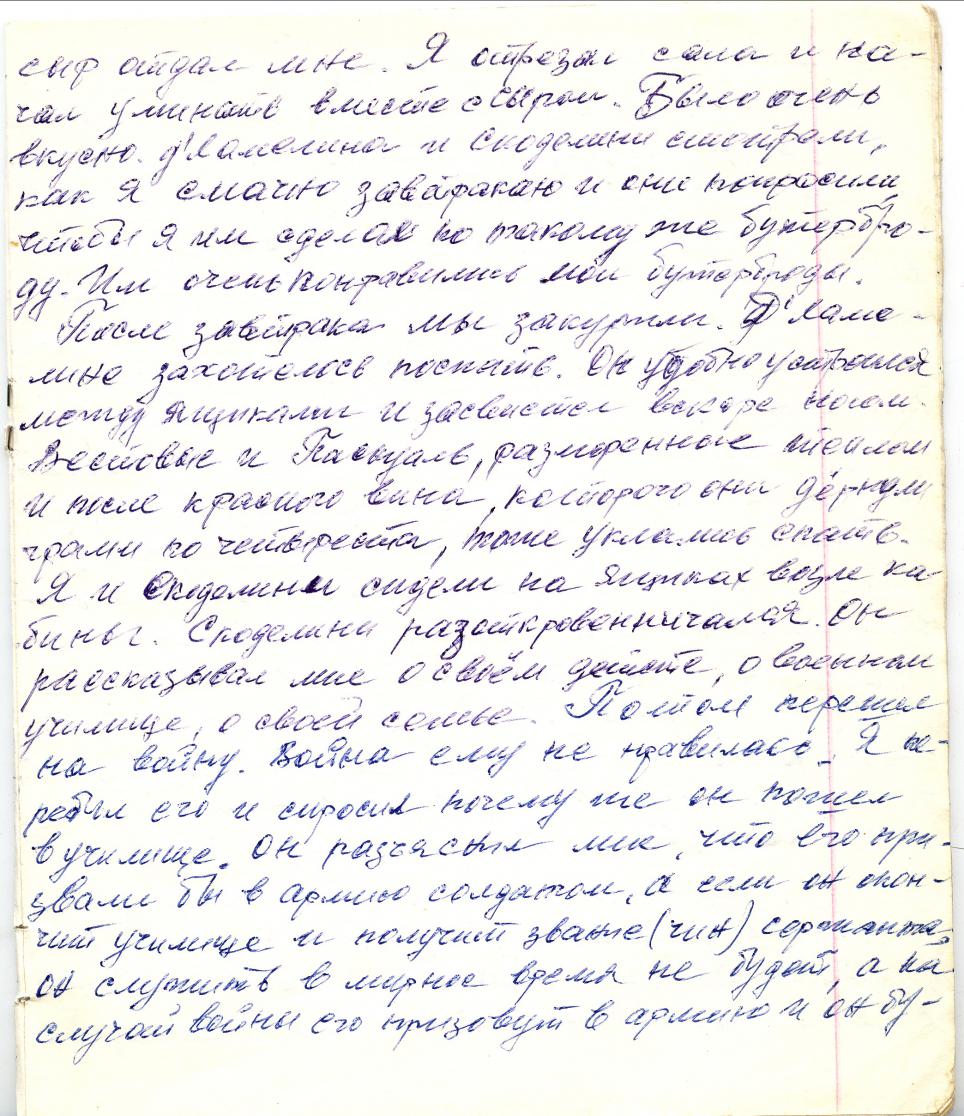 сыр отдал мне. Я отрезал сала и на-
чал уминать вместе с сыром. Было очень
вкусно. д'Ламелина и Скоделини смотрели,
как я смачно завтракаю и они попросили,
чтобы я им сделал по такому же бутербро-
ду. Им очень понравились мои бутерброды.
После завтрака мы закурили. Д'Ламе-
лине захотелось поспать. Он удобно устроился
между ящиками и засвистел вскоре носом.
Вестовые и Паскуаль, разморенные теплом
и после красного вина, которого они дёрнули
грамм по четыреста, тоже уклались спать.
Я и Скоделини сидели на ящиках возле ка-
бины. Скоделини разоткровенничался. Он
рассказывал мне о своём детсте, о военном
училище, о своей семье. Потом перешел
на войну. Война ему не нравилась. Я пе-
ребил его и спросил почему же он пошел
в училище. Он разъяснил мне, что его при-
звали бы в армию солдатом, а если он окон-
чит училище и получит звание (чин) сержанта,
он служить в мирное время не будет, а на
случай войны его призовут в армию и он бу-